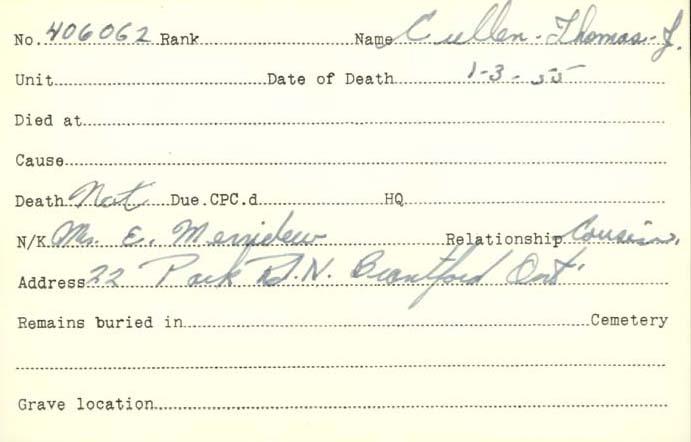 No. 406062 Rank Name Cullen - Thomas - J.
Unit Date of Death 1-3-55
Died at
Cause
Death Not Due.CPC.d HQ
N/K Mrs. E. Merridew Relationship Cousin.
Address 22 Park Rd. N. Brantford Ont
Remains buried in Cemetery
Grave location